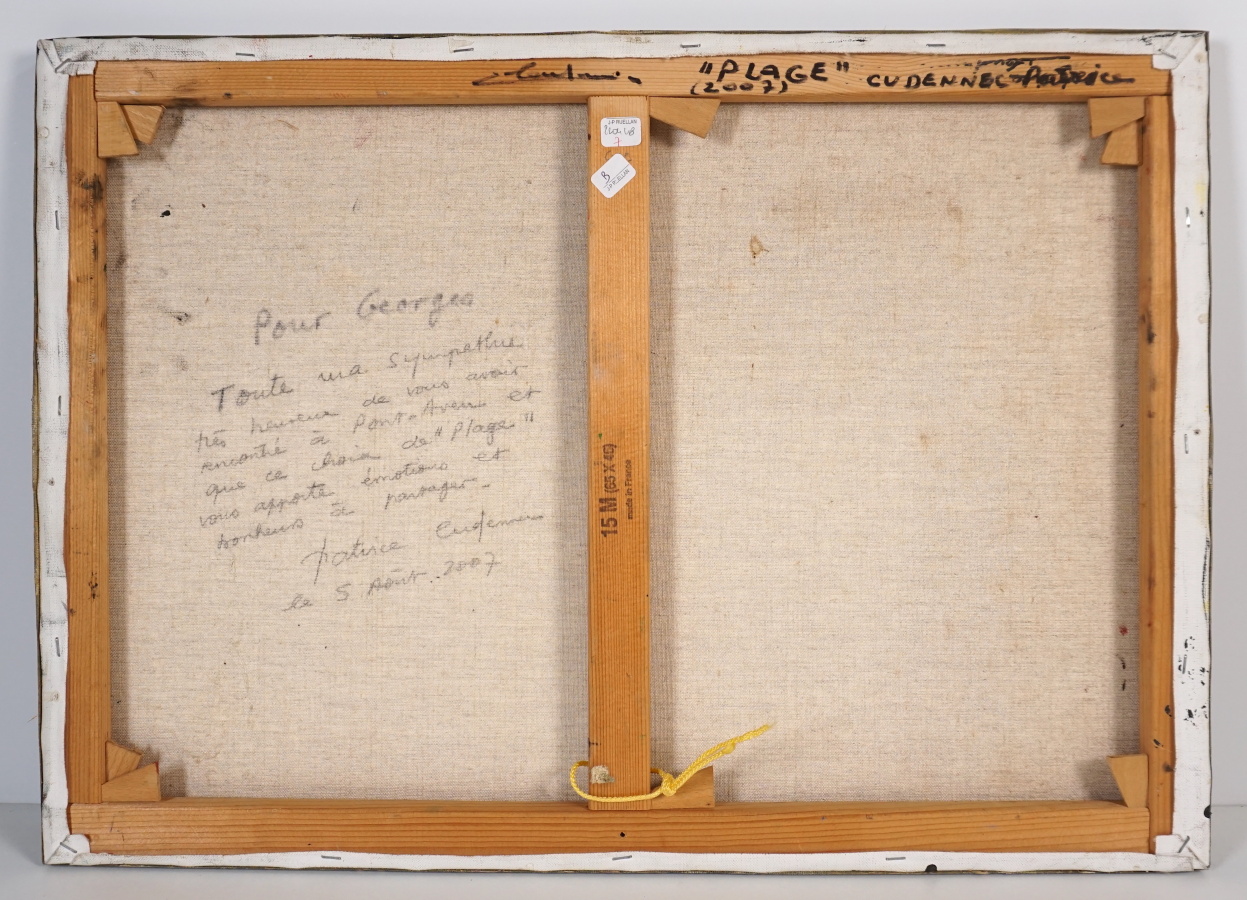 "PLAGE"
(2007)
CUDENNEC Patrice
J-P RUELLAN
7
B
J-P RUELLAN
15 M (65 X 46)
made in France
Pour Georges
Toute ma sympathie
très heureux de vous avoir
rencontré à Pont-Aven et
que ce choix de "Plage"
vous apporte émotions et
bonheurs à partager -
Patrice Cudennec
le 5 Août 2007